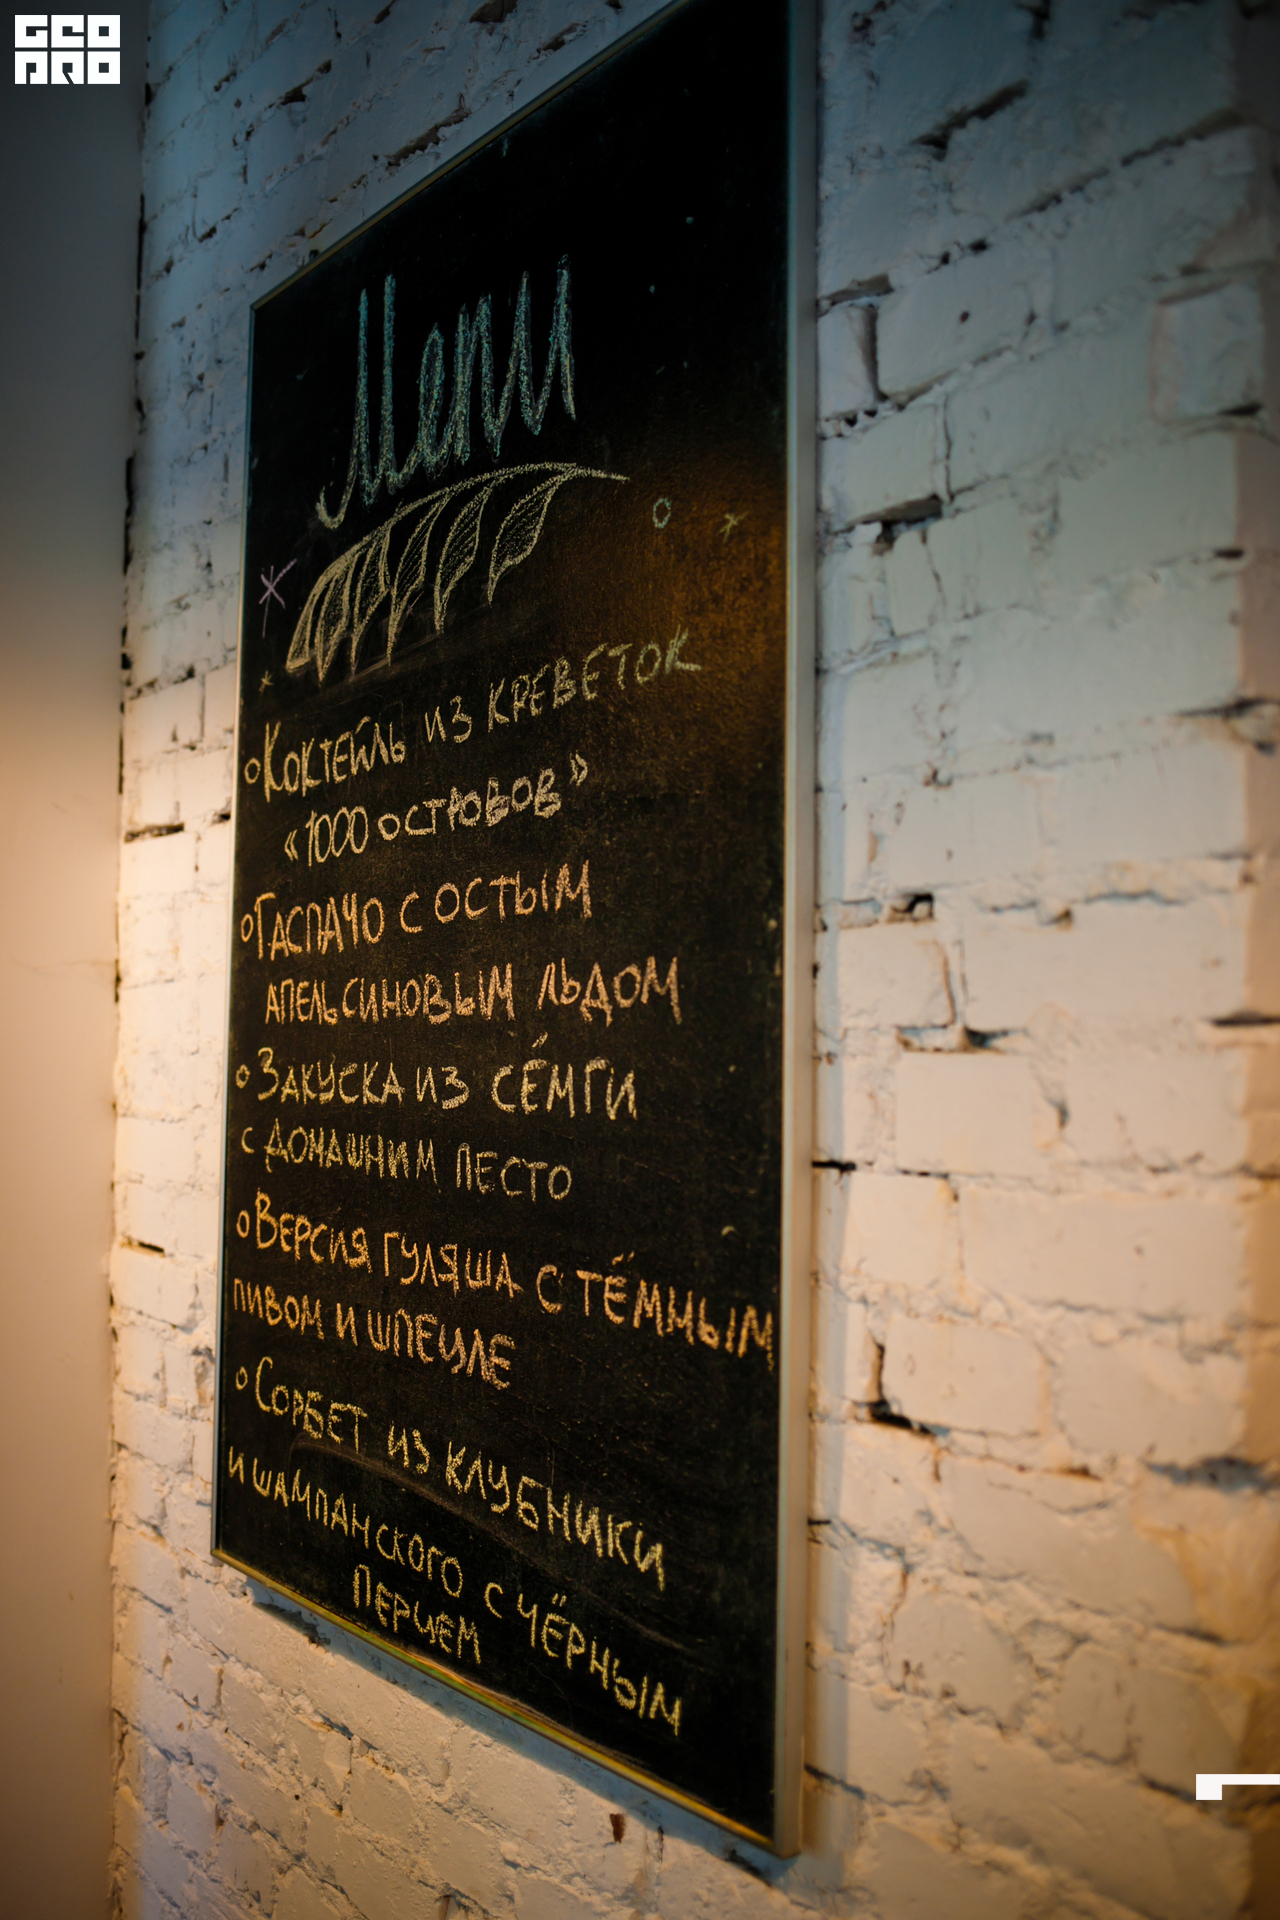 GEO
PRO
Menu
Коктейль из креветок
«1000 островов»
Гаспачо с остым
апельсиновым льдом
Закуска из сёмги
с домашним песто
Версия гуляша с тёмным
пивом и шпецле
Сорбет из клубники
и шампанского с чёрным
перцем